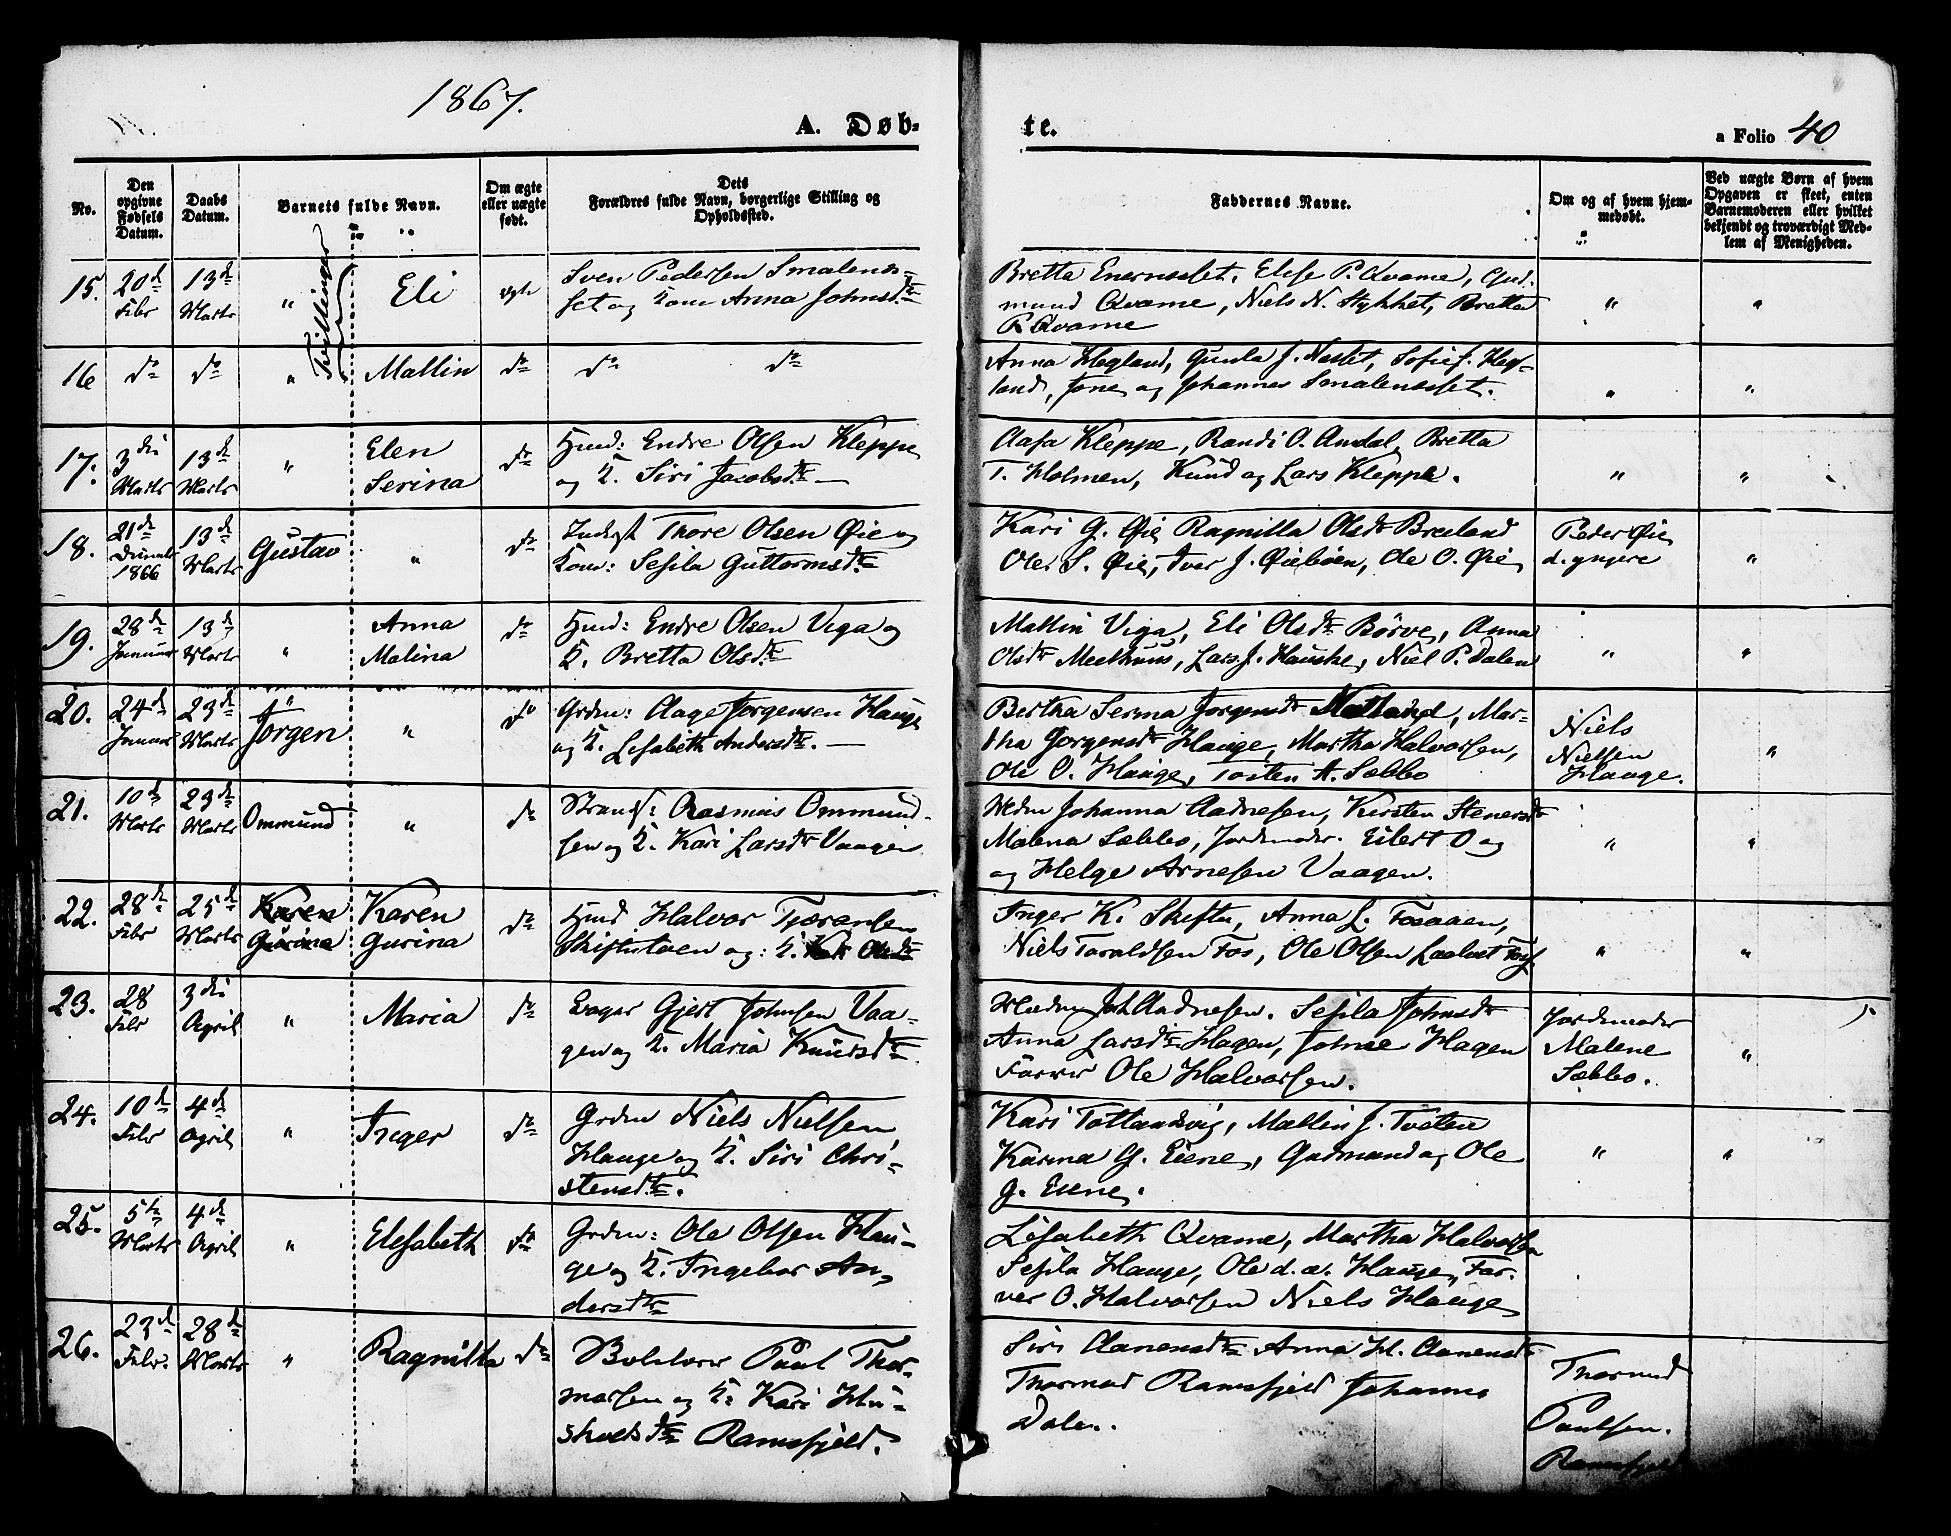 1867.
A. Døb-
te.
a Folio 40
No.
Den
opgivne
Fødsels
Datum.
Daabs
Datum.
Barnets fulde Navn.
Om ægte
eller uægte
født.
Dets
Forældres fulde Navn, borgerlige Stilling og
Opholdssted.
Faddernes Navne.
Om og af hvem hjem-
medøbt.
Ved uægte Børn af hvem
Opgaven er skeet, enten
Barnemoderen eller hvilket
bekjendt og troværdigt Med-
lem af Menigheden.
Tvillinger
15. 20de Febr 13de Marts " Eli ægte
Sven Pedersen Smalenes-
set og Kone Anna Johnsdtr
Bretta Enernesset, Elise P. Qvame, Gud-
mund Qvame, Niels N. Stykket, Bretta
P. Qvame
" "
16 do do " Mallin do
do do
Anna Hegland, Gunla J. Neset, Sofie J. Heg-
land, Jone og Johannes Smalenesset.
" "
17. 3die Marts 13de Marts " Elen
Serina do
Hmd: Endre Olsen Kleppe
og K. Siri Jacobsdtr —
Aasa Kleppe, Randi O. Amdal, Bretta
T. Holmen, Knud og Lars Kleppe.
" "
18. 21de Decembr
1866 13de Marts Gustav " do
Inderst Thore Olsen Øie og
Kone: Sesila Guttormsdtr
Kari G. Øie Ragnilla Olsdtr Breeland
Oler S. Øie, Iver J. Øiebøen, Ole O. Øie
Peder Øie
d. yngere
"
19. 28de Januar 13de Marts " Anna
Malina do
Hmd: Endre Olsen Vega og
K. Bretta Olsdtr
Mallin Viga, Eli Olsdtr Børve, Anna
Olsdtr Meethuus, Lars J. Hauske, Niel P. Dalen
" "
20. 24de Januar 23de Marts Jørgen " do
Grdm: Aage Jørgensen Hauge
og K. Lisabeth Andersdtr. —
Bertha Serina Jørgensdtr Natland, Mar-
tha Jørgensdtr Hauge, Martha Halvorsen,
Ole O. Hauge, Tosten A. Sæbbø
Niels
Nielsen
Hauge.
"
21. 10de Marts 23de Marts Ommund " do
Strands: Rasmus Ommund-
sen og K. Kari Larsdtr Vaagen
Madm Johanna Aadnesen, Kirsten Stenersdtr
Malena Sæbbø, Jordemoder. Eilert O og
og Helge Arnesen Vaagen.
" "
22. 28de Febr 25de Marts Karen
Gurina Karen
Gurina do
Hmd Halvor Tjæransen
Skiftestøen og: K. Olsdtr
Inger K. Skifte, Anna L. Fosaaen,
Niels Taraldsen Fos, Ole Olsen
" "
23. 28 Febr 3die April " Maria do
Gjert Johnsen Vaa-
gen og K. Maria Knudsdtr
Madm Joh Aadnesen. Sesila Johnsdtr
Anna Larsdtr Hagen, Johne Hagen
Farver Ole Halvorsen.
Jordemoder
Malene
Sæbbø.
"
24. 10de Febr 4de April " Inger do
Grdm Niels Nielsen
Hauge og K. Siri Chri-
stensdtr.
Kari Totlandsvig, Mallin J. Tveten
Karina G. Eiene, Gudmund og Ole
G. Eiene.
" "
25. 5te Marts 4de April " Elesabeth do
Grdm: Ole Olsen Hau-
ge og K. Ingebor An-
dersdtr
Lisabeth Qvame, Martha Halvorsen
Sesila Hauge, Ole d. æ. Hauge, Far-
ver O. Halvorsen Niels Hauge
26. 23de Febr. 28de Marts " Ragnilla do
Paul Thor-
morsen og K. Kari Hu-
skoldsdtr Ramsfjeld.
Siri Aanensdtr Anna H. Aanensdtr
Thormod Ramsfjeld Johanna
Dalen.
Thormod
Paulsen.
Ramsfjeld